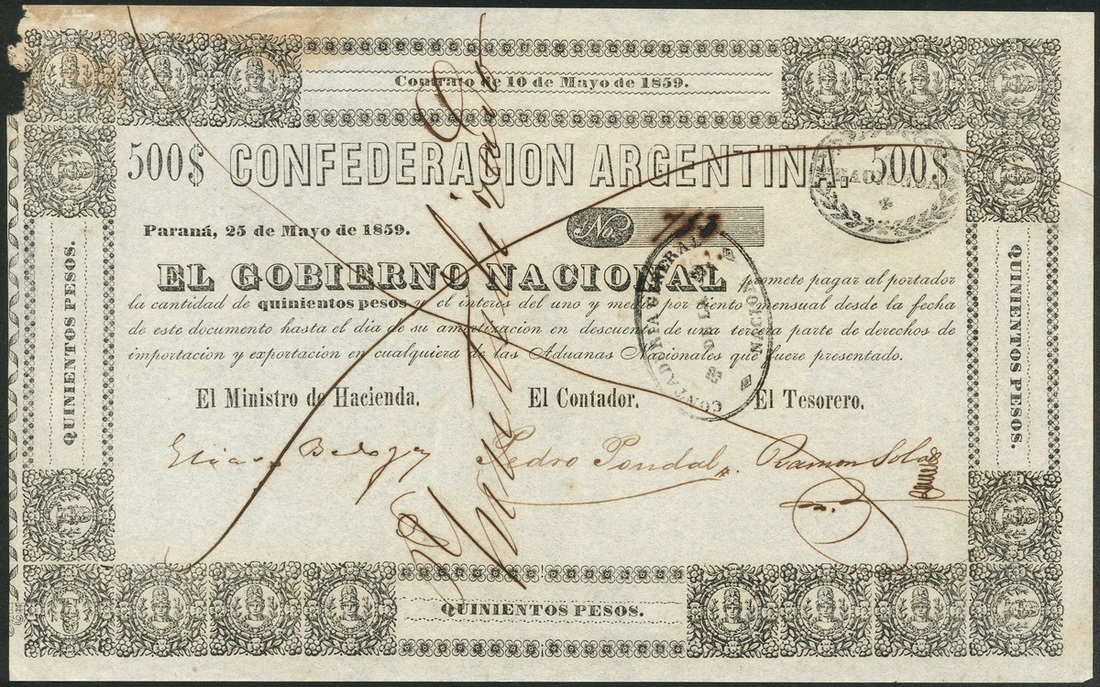 Contrato de 10 de Mayo de 1859.
500$ CONFEDERACION ARGENTINA. 500$
HACIENDA
Paraná, 25 de Mayo de 1859.
No. 753
EL GOBIERNO NACIONAL promete pagar al portador
la cantidad de quinientos pesos y el interés del uno y medio por ciento mensual desde la fecha
de este documento hasta el dia de su amortizacion en descuento de una tercera parte de derechos de
importacion y exportacion en cualquiera de las Aduanas Nacionales que fuere presentado.
CONTADURIA GENERAL
NACION
El Ministro de Hacienda. El Contador. El Tesorero.
Pedro Pondal. Ramon Sola
QUINIENTOS PESOS.
QUINIENTOS PESOS.
QUINIENTOS PESOS.